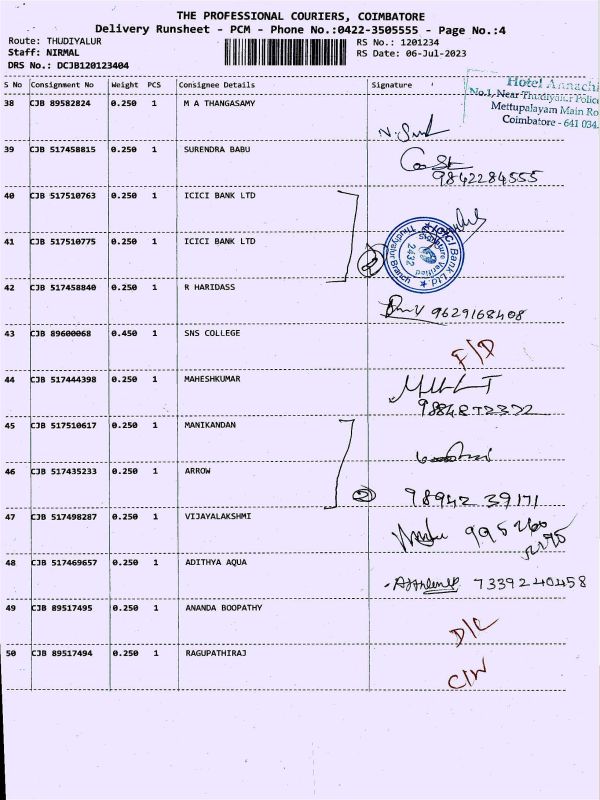 THE PROFESSIONAL COURIERS, COIMBATORE
Delivery Runsheet - PCM - Phone No.:0422-3505555 - Page No.:4
Route: THUDIYALUR
Staff: NIRMAL
DRS No.: DCJB120123404
RS No.: 1201234
RS Date: 06-Jul-2023
S No Consignment No Weight PCS Consignee Details Signature
Hotel Annachi
No.1, Near Thudiyalur Police
Mettupalayam Main Ro
Coimbatore - 641 034.
38 CJB 89582824 0.250 1 M A THANGASAMY
39 CJB 517458815 0.250 1 SURENDRA BABU
9842284555
40 CJB 517510763 0.250 1 ICICI BANK LTD
41 CJB 517510775 0.250 1 ICICI BANK LTD
2
ICICI Bank Ltd
Thudiyalur Branch
Signature Verified
2432
42 CJB 517458840 0.250 1 R HARIDASS
9629168408
43 CJB 89600068 0.450 1 SNS COLLEGE
F/D
44 CJB 517444398 0.250 1 MAHESHKUMAR
45 CJB 517510617 0.250 1 MANIKANDAN
46 CJB 517435233 0.250 1 ARROW
2 98942 39171
47 CJB 517498287 0.250 1 VIJAYALAKSHMI
48 CJB 517469657 0.250 1 ADITHYA AQUA
7339240458
49 CJB 89517495 0.250 1 ANANDA BOOPATHY
D/L
50 CJB 89517494 0.250 1 RAGUPATHIRAJ